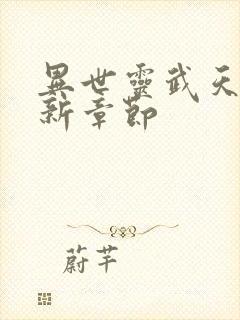 異世靈武天
新章節
蔚芊